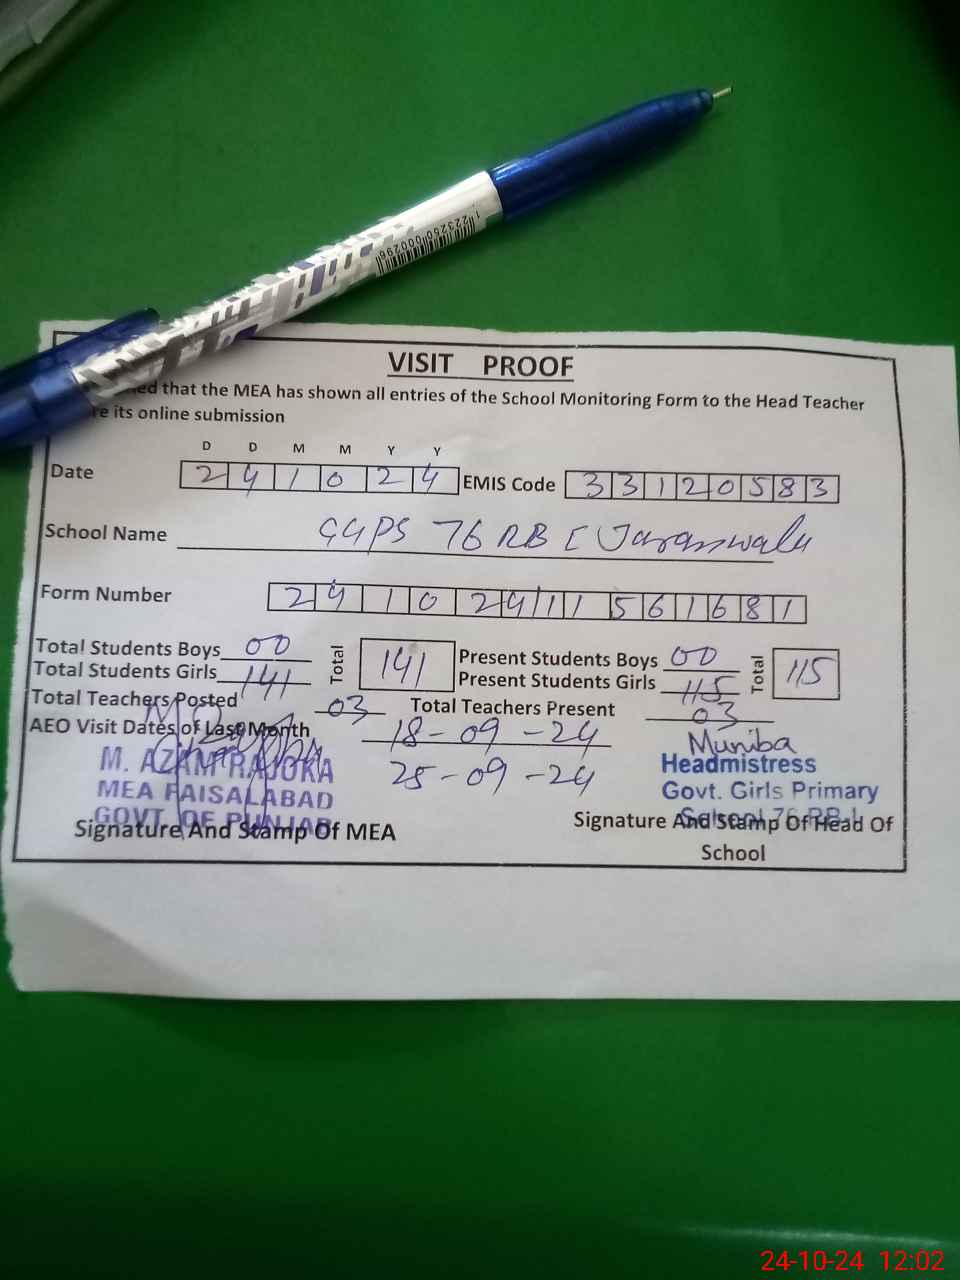 1 223260 000296
VISIT PROOF
that the MEA has shown all entries of the School Monitoring Form to the Head Teacher
its online submission
D D M M Y Y
Date 24 10 24 EMIS Code 33120583
School Name GGPS 76 RB I Jaranwala
Form Number 24 10 24 11 561681
Total Students Boys 00 Total 141 Present Students Boys 00 Total 115
Total Students Girls 141 Present Students Girls 115
Total Teachers Posted 03 Total Teachers Present 03
AEO Visit Dates of Last Month 18-09-24
25-09-24
Muniba
M. AZAM RAJOKA
MEA FAISALABAD
GOVT. OF PUNJAB
Signature And Stamp Of MEA
Headmistress
Govt. Girls Primary
School 76 RB-I
Signature And Stamp Of Head Of
School
24-10-24 12:02